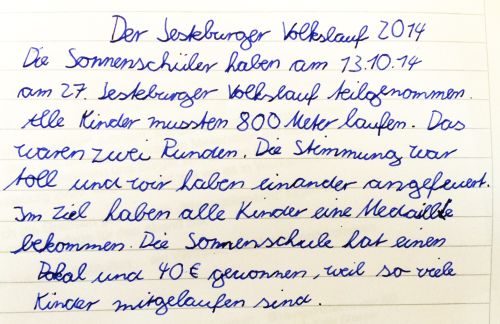 Der Jesteburger Volkslauf 2014
Die Sonnenschüler haben am 13.10.14
am 27. Jesteburger Volkslauf teilgenommen.
Alle Kinder mussten 800 Meter laufen. Das
waren zwei Runden. Die Stimmung war
toll und wir haben einander angefeuert.
Im Ziel haben alle Kinder eine Medaille
bekommen. Die Sonnenschule hat einen
Pokal und 40 € gewonnen, weil so viele
Kinder mitgelaufen sind.